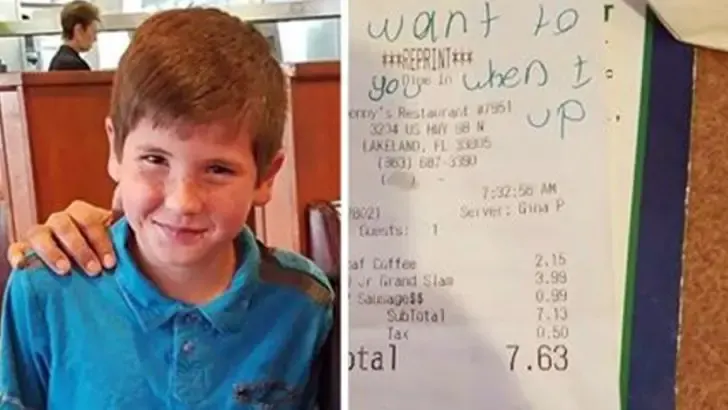 want to
***REPRINT***
Dine In
you when I
enny's Restaurant #7951
up
3204 US HWY 98 N
LAKELAND, FL 33805
(863) 687-3390
( -
7:32:56 AM
78021 Server: Gina P
Guests: 1
af Coffee 2.15
Jr Grand Slam 3.99
Sausage$$ 0.99
SubTotal 7.13
Tax 0.50
otal 7.63